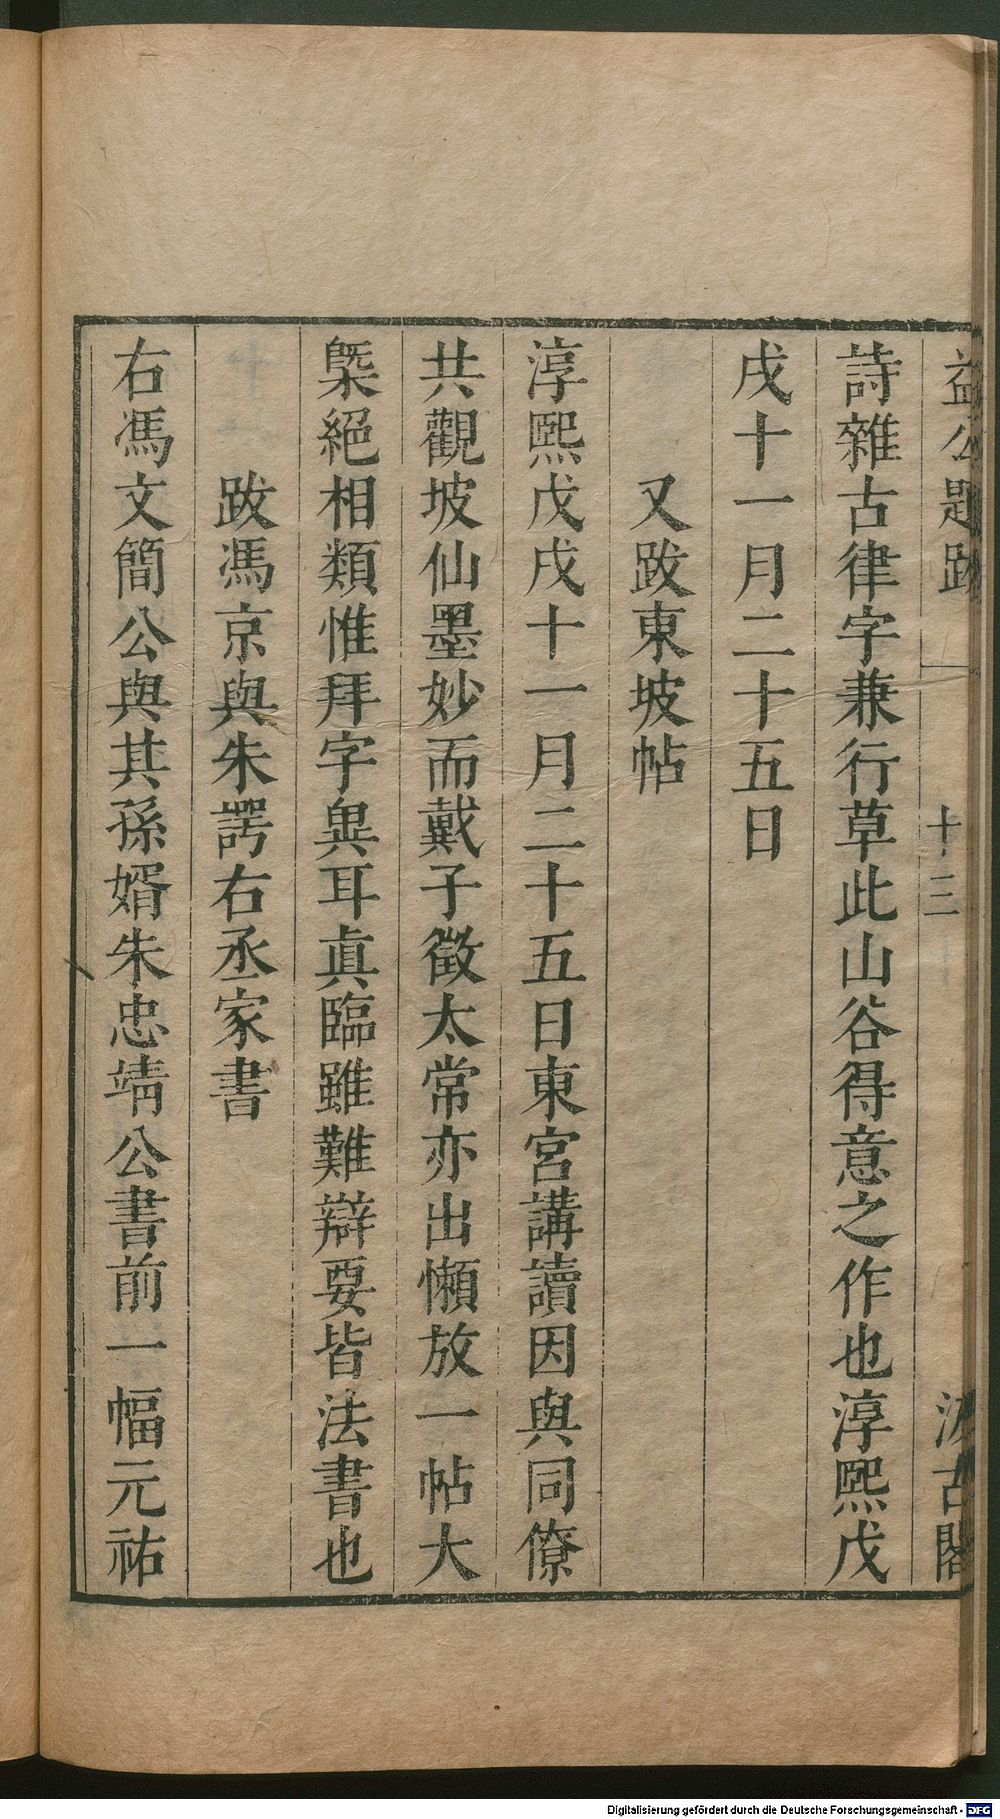 益公題跋
十三
汲古閣
詩雜古律字兼行草此山谷得意之作也淳熙戊
戌十一月二十五日
又跋東坡帖
淳熙戊戌十一月二十五日東宮講讀因與同僚
共觀坡仙墨妙而戴子微太常亦出懶放一帖大
槩絕相類惟拜字異耳眞臨雖難辯要皆法書也
跋馮京與朱諤右丞家書
右馮文簡公與其孫婿朱忠靖公書前一幅元祐
Digitalisierung gefördert durch die Deutsche Forschungsgemeinschaft - DFG